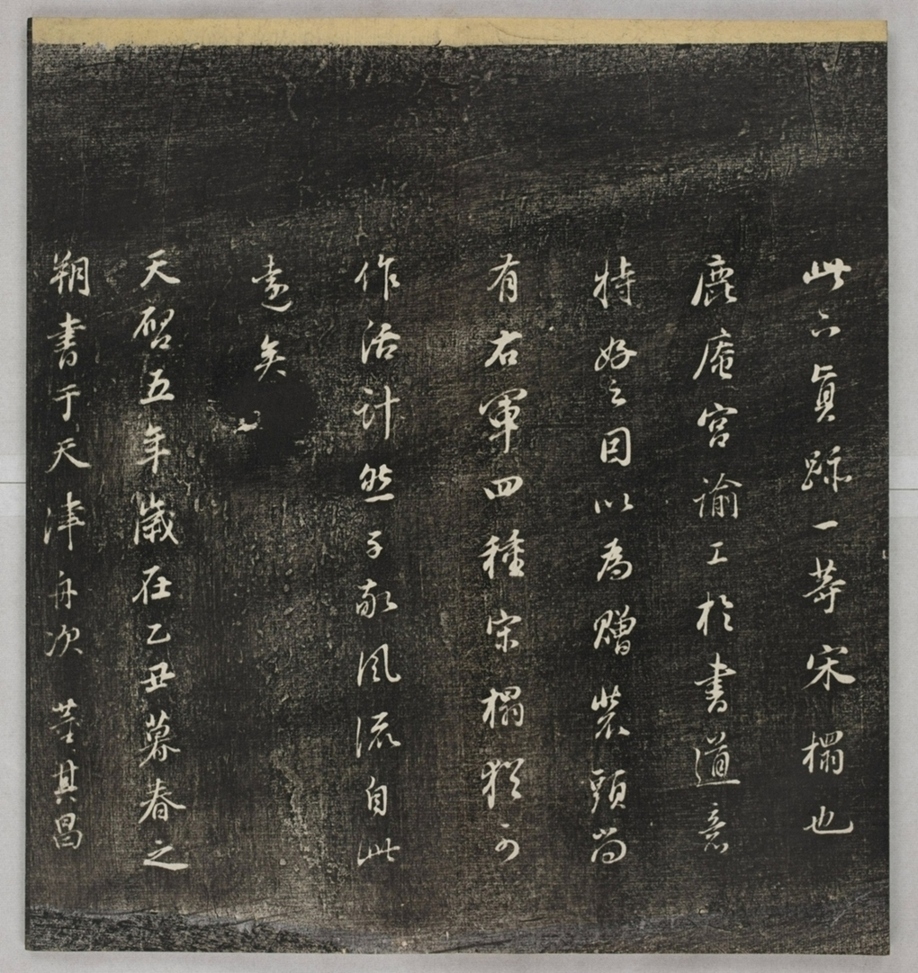 此下真跡一等宋榻也
鹿庵宮諭工於書道意
特好之因以為贈裝頭尚
有右軍四種宋榻猶可
作活計然子敬風流自此
遠矣
天啓五年歲在乙丑暮春之
朔書于天津舟次 董其昌